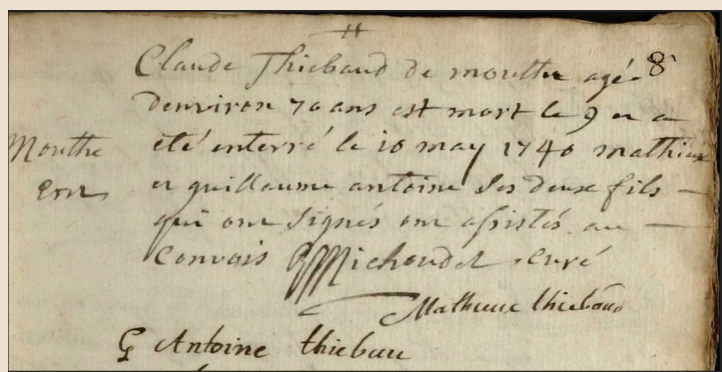 8
Claude Thiebaud de mouthe agé
denviron 70 ans est mort le 9 en a
Mouthe
été enterré le 10 may 1740 mathieu
en guillaume antoine ses deux fils
qui ont signés ont assistés au
convois Michoudet curé
Mathieu thiebaud
G Antoine thiebau